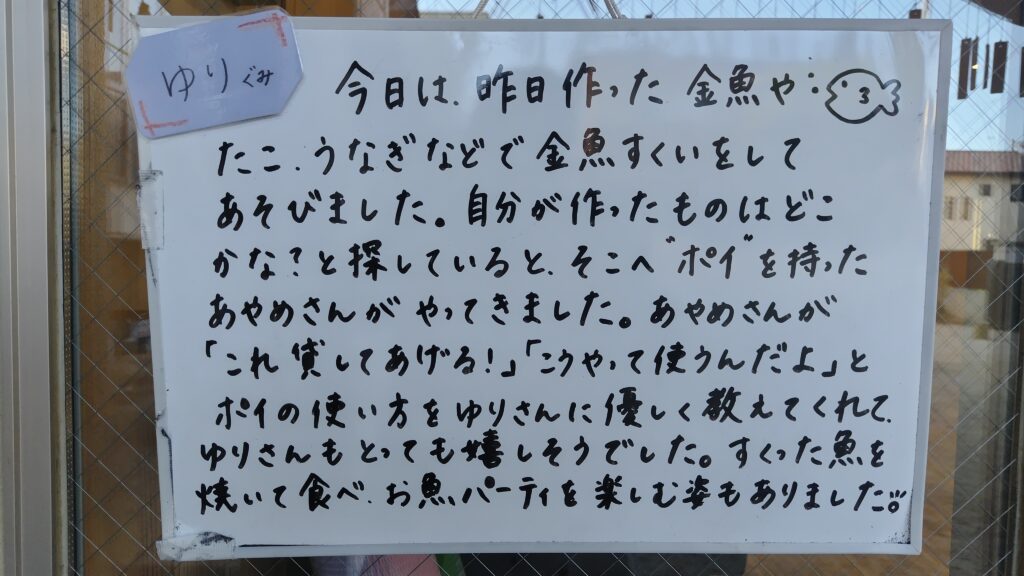 ゆりぐみ
今日は、昨日作った 金魚や
たこ、うなぎなどで金魚すくいをして
あそびました。自分が作ったものはどこ
かな?と探していると、そこへ"ポイ"を持った
あやめさんがやってきました。あやめさんが
「これ貸してあげる!」「こうやって使うんだよ」と
ポイの使い方をゆりさんに優しく教えてくれて、
ゆりさんもとっても嬉しそうでした。すくった魚を
焼いて食べ、お魚パーティを楽しむ姿もありました。